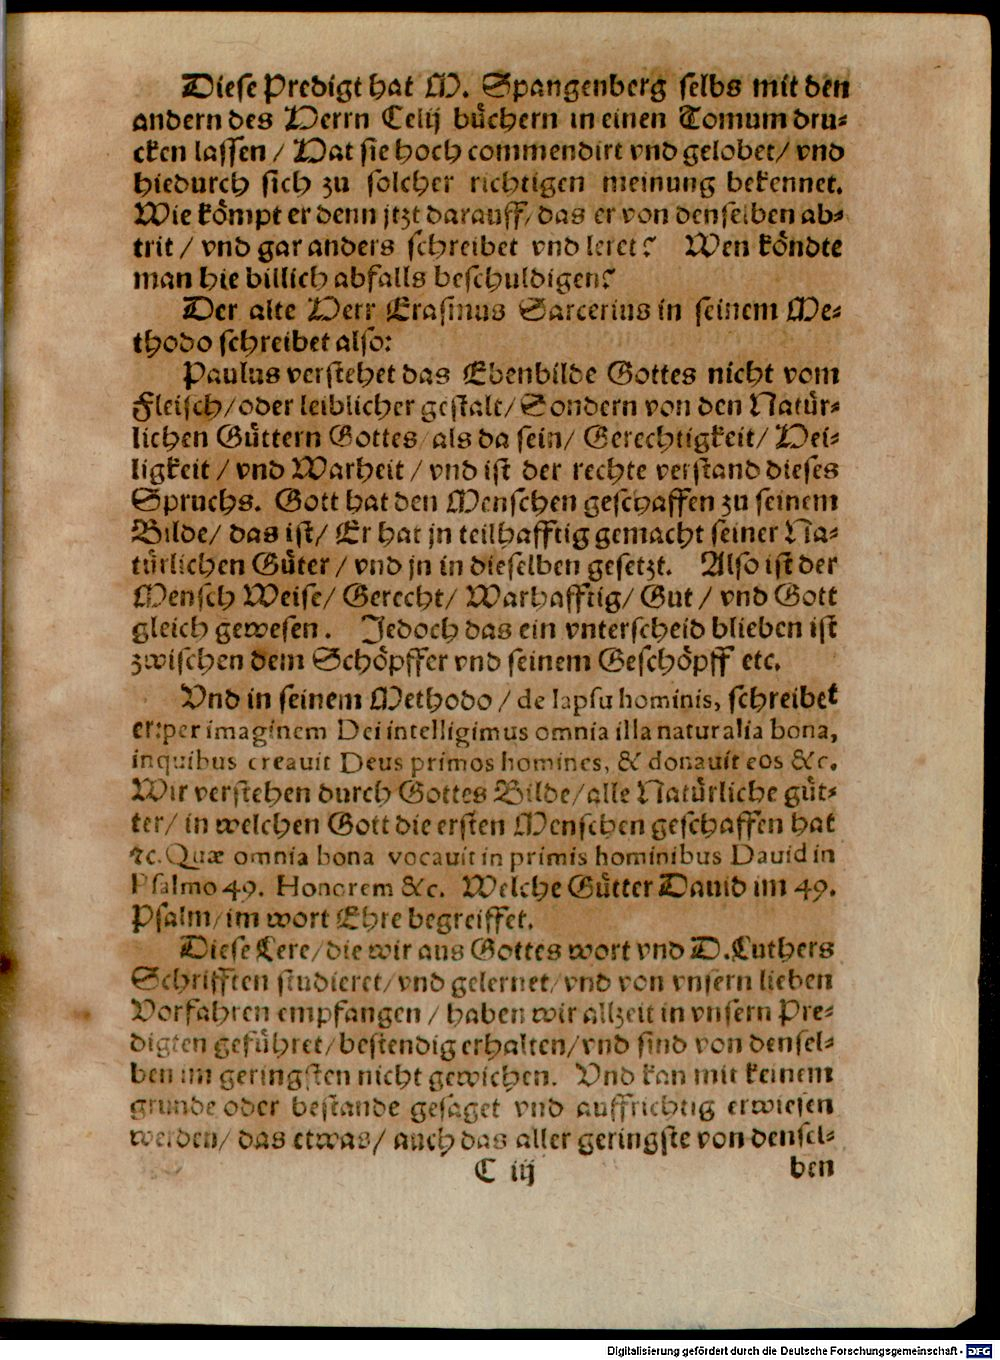 Diese Predigt hat M. Spangenberg selbs mit den
andern des Herrn Celij büchern in einen Tomum dru-
cken lassen / Hat sie hoch commendirt vnd gelobet / vnd
hiedurch sich zu solcher richtigen meinung bekennet.
Wie kömpt er denn jtzt darauff / das er von denselben ab-
trit / vnd gar anders schreibet vnd leret? Wen köndte
man hie billich abfalls beschuldigen?
Der alte Herr Erasmus Sarcerius in seinem Me-
thodo schreibet also:
Paulus verstehet das Ebenbilde Gottes nicht vom
Fleisch / oder leiblicher gestalt / Sondern von den Natür-
lichen Güttern Gottes / als da sein / Gerechtigkeit / Hei-
ligkeit / vnd Warheit / vnd ist der rechte verstand dieses
Spruchs. Gott hat den Menschen geschaffen zu seinem
Bilde / das ist / Er hat jn teilhafftig gemacht seiner Na-
türlichen Güter / vnd jn in dieselben gesetzt. Also ist der
Mensch Weise / Gerecht / Warhafftig / Gut / vnd Gott
gleich gewesen. Jedoch das ein vnterscheid blieben ist
zwischen dem Schöpffer vnd seinem Geschöpff etc.
Vnd in seinem Methodo / de lapsu hominis, schreibet
er: per imaginem Dei intelligimus omnia illa naturalia bona,
in quibus creauit Deus primos homines, & donauit eos &c.
Wir verstehen durch Gottes Bilde / alle Natürliche güt-
ter / in welchen Gott die ersten Menschen geschaffen hat
ꝛc. Quæ omnia bona vocauit in primis hominibus Dauid in
Psalmo 49. Honorem &c. Welche Gütter Dauid im 49.
Psalm / im wort Ehre begreiffet.
Diese Lere / die wir aus Gottes wort vnd D. Luthers
Schrifften studieret / vnd gelernet / vnd von vnsern lieben
Vorfahren empfangen / haben wir allzeit in vnsern Pre-
digten geführet / bestendig erhalten / vnd sind von densel-
ben im geringsten nicht gewichen. Vnd kan mit keinem
grunde oder bestande gesaget vnd auffrichtig erwiesen
werden / das etwas / auch das aller geringste von densel-
C iij ben
Digitalisierung gefördert durch die Deutsche Forschungsgemeinschaft - DFG